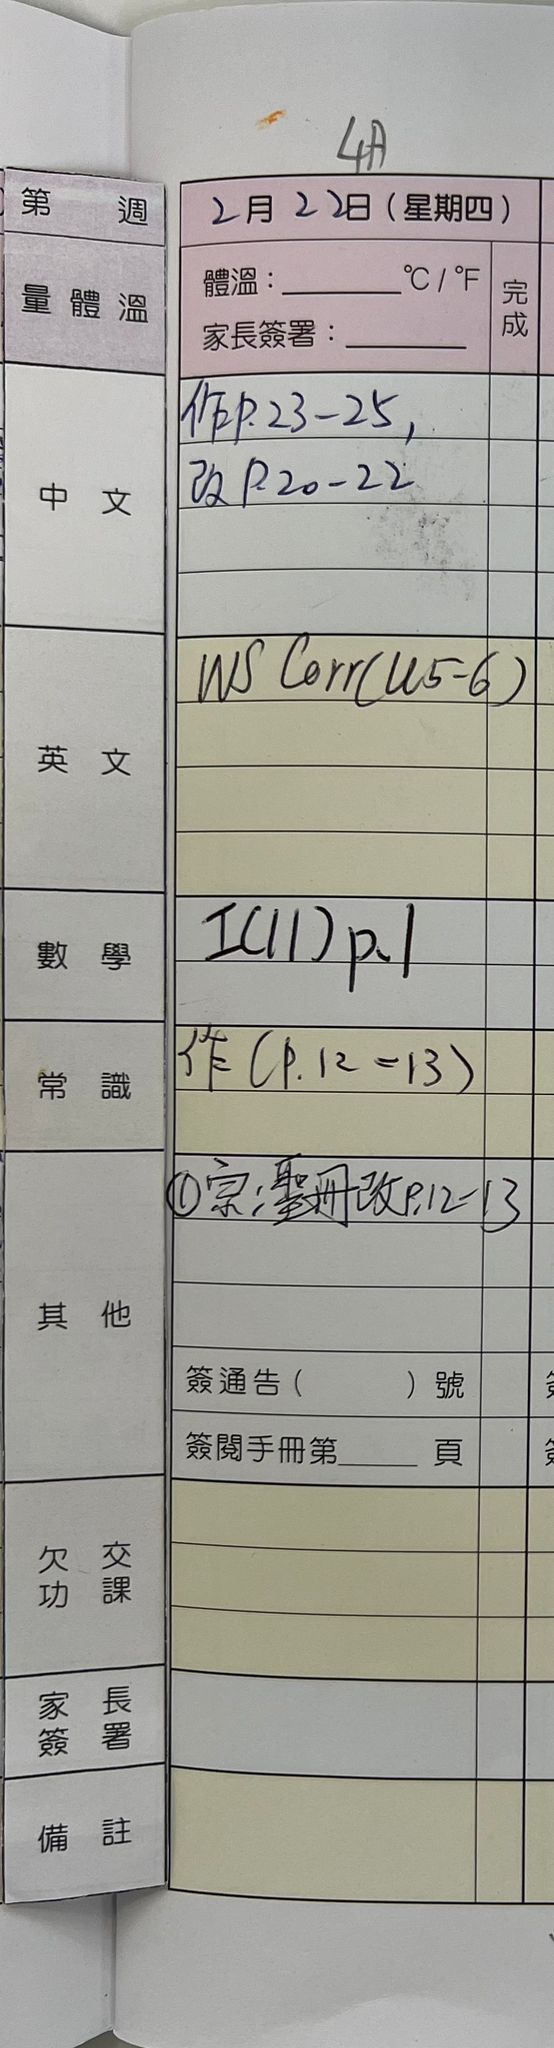 4A
第 週
2月22日(星期四)
量體溫
體溫：______°C/°F
家長簽署：______
完成
中文
作P.23-25,
改P.20-22
英文
WS Corr(U5-6)
數學
I(11) p.1
常識
作(P.12-13)
其他
①宗:聖冊改P.12-13
簽通告( )號
簽閱手冊第____頁
欠交功課
家長簽署
備註